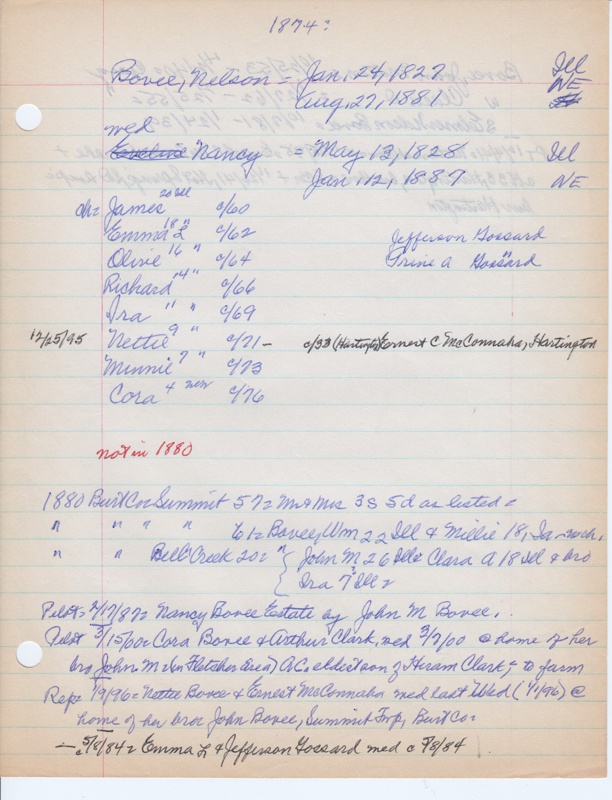 1874:
Bovee, Nelson = Jan. 24, 1827 Ill
Aug. 27, 1881 NE
wed
Nancy = May 13, 1828 Ill
Jan. 12, 1887 NE
ch= James 20 Ill c/60
Emma L 18 " c/62 Jefferson Gossard
Olivie 16 " c/64 Gossard
Richard 14 " c/66
Ira 11 " c/69
12/25/95 Nettie 9 " c/71 - c/33 (Hartington) Ernest C McConnaha, Hartington
Minnie 7 " c/73
Cora 4 c/76
not in 1880
1880 Burt Co= Summit 57= Mr & Mrs 3s 5d as listed=
" " " " 61= Bovee, Wm 22 Ill & Millie 18, Ia
" " Bell Creek 20= " John M 26 Ill & Clara A 18 Ill & bro
Ira 7 Ill=
Pilot= 2/17/87= Nancy Bovee Estate by John M Bovee.
Pilot 3/15/60= Cora Bovee & Arthur Clark, wed 3/7/00 @ home of her
bro John M (in Fletcher area) A C, eldest son of Hiram Clark; to farm
Rep= 1/9/96= Nettie Bovee & Ernest McConnaha wed last Wed (1/1/96) @
home of her bro John Bovee, Summit Twp, Burt Co=
- c5/8/84= Emma L & Jefferson Gossard wed c 5/8/84